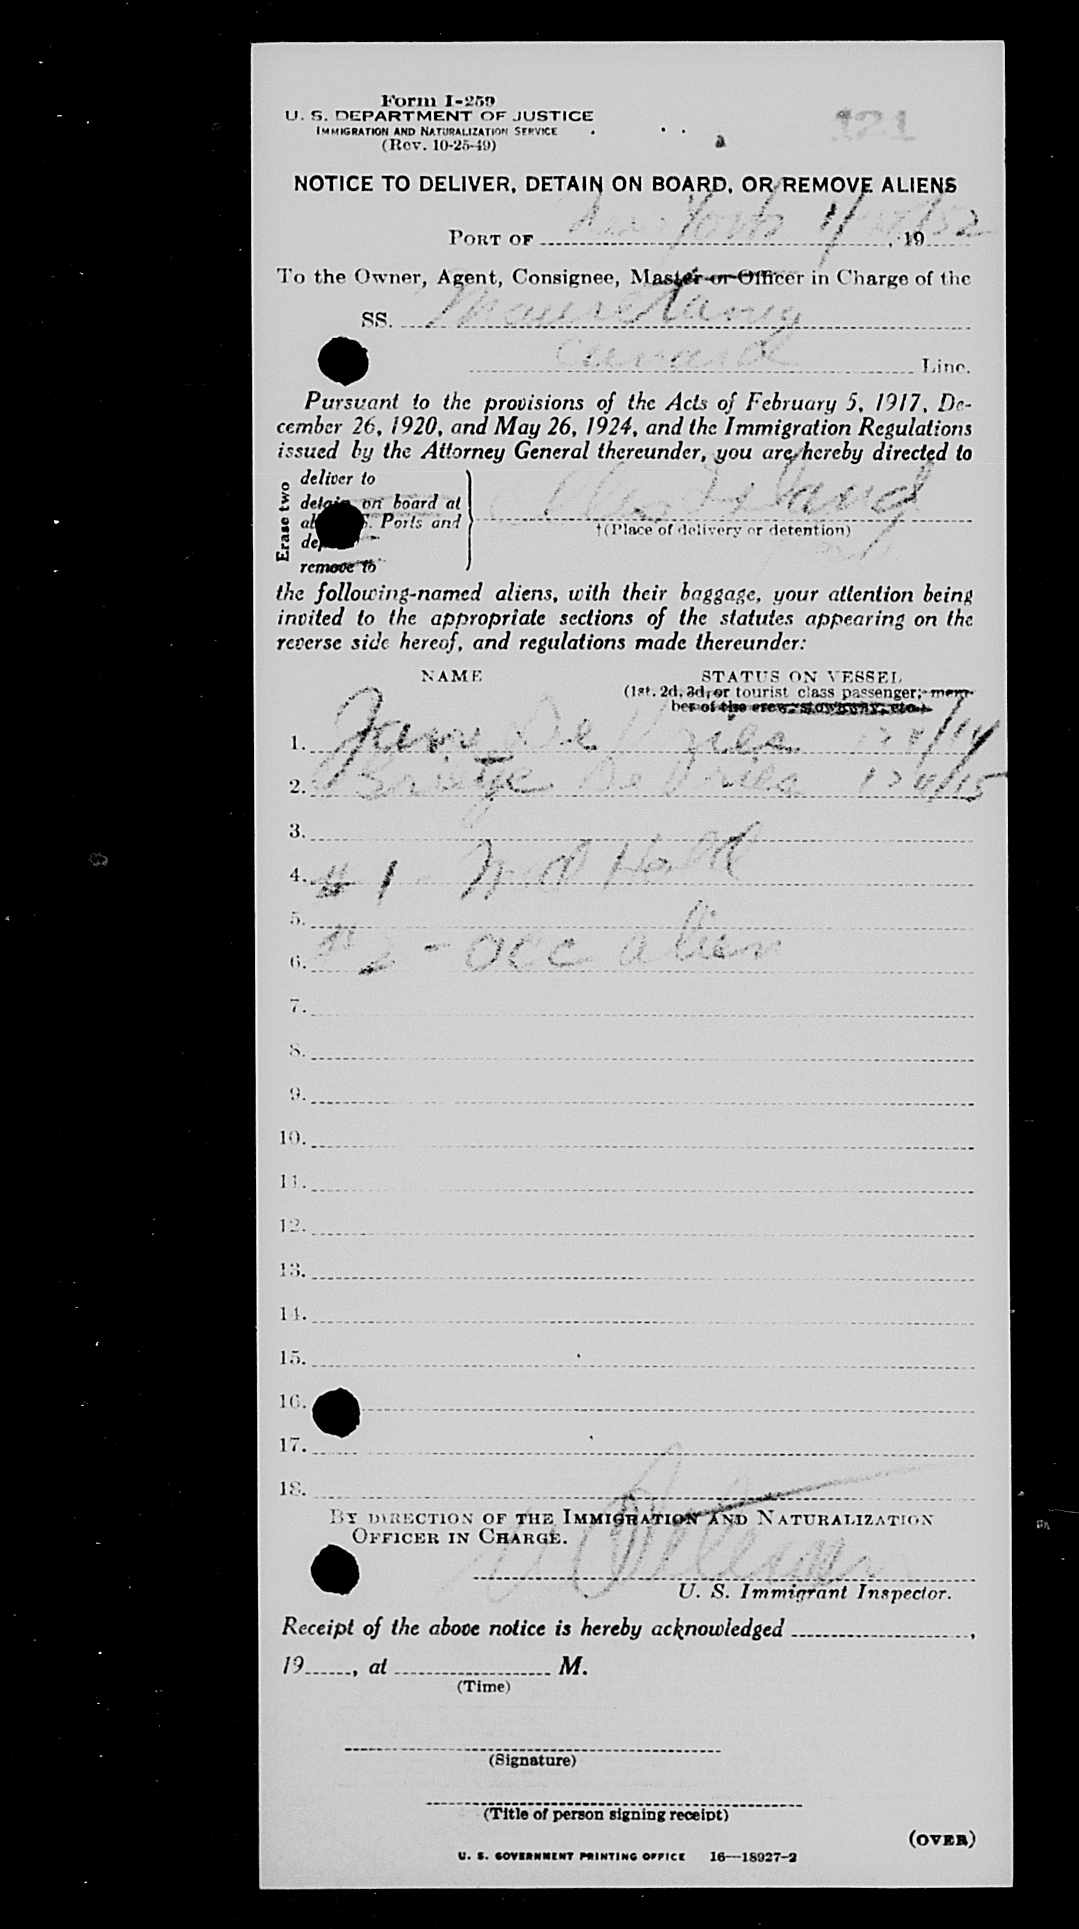 Form I-259
U. S. DEPARTMENT OF JUSTICE
IMMIGRATION AND NATURALIZATION SERVICE
(Rev. 10-25-49)
121
NOTICE TO DELIVER, DETAIN ON BOARD, OR REMOVE ALIENS
PORT OF New York 1/ , 19 52
To the Owner, Agent, Consignee, Master or Officer in Charge of the
SS. Mauretania
Cunard Line.
Pursuant to the provisions of the Acts of February 5, 1917, De-
cember 26, 1920, and May 26, 1924, and the Immigration Regulations
issued by the Attorney General thereunder, you are hereby directed to
Erase two
deliver to
detain on board at
al S. Ports and
de
remove to
Island
†(Place of delivery or detention)
the following-named aliens, with their baggage, your attention being
invited to the appropriate sections of the statutes appearing on the
reverse side hereof, and regulations made thereunder:
NAME STATUS ON VESSEL
(1st, 2d, 3d, or tourist class passenger; mem-
ber of the crew, stowaway, etc.)
1. De Vries /14
2. De Vries /15
3.
4. # 1 - Hold
5.
6. #2 - acc alien
7.
8.
9.
10.
11.
12.
13.
14.
15.
16.
17.
18.
BY DIRECTION OF THE IMMIGRATION AND NATURALIZATION
OFFICER IN CHARGE.
U. S. Immigrant Inspector.
Receipt of the above notice is hereby acknowledged ,
19 , at M.
(Time)
(Signature)
(Title of person signing receipt)
(OVER)
U. S. GOVERNMENT PRINTING OFFICE 16—18927-2